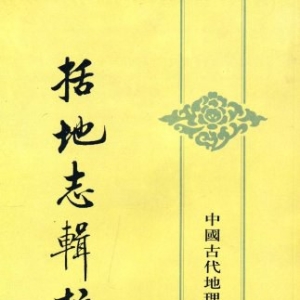 中國古代地理
括地志輯